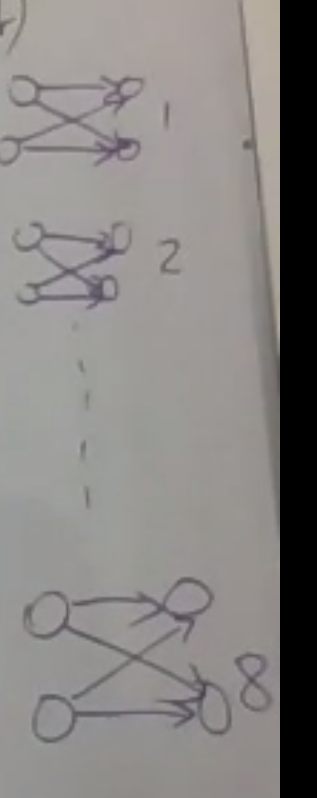 1
2
8